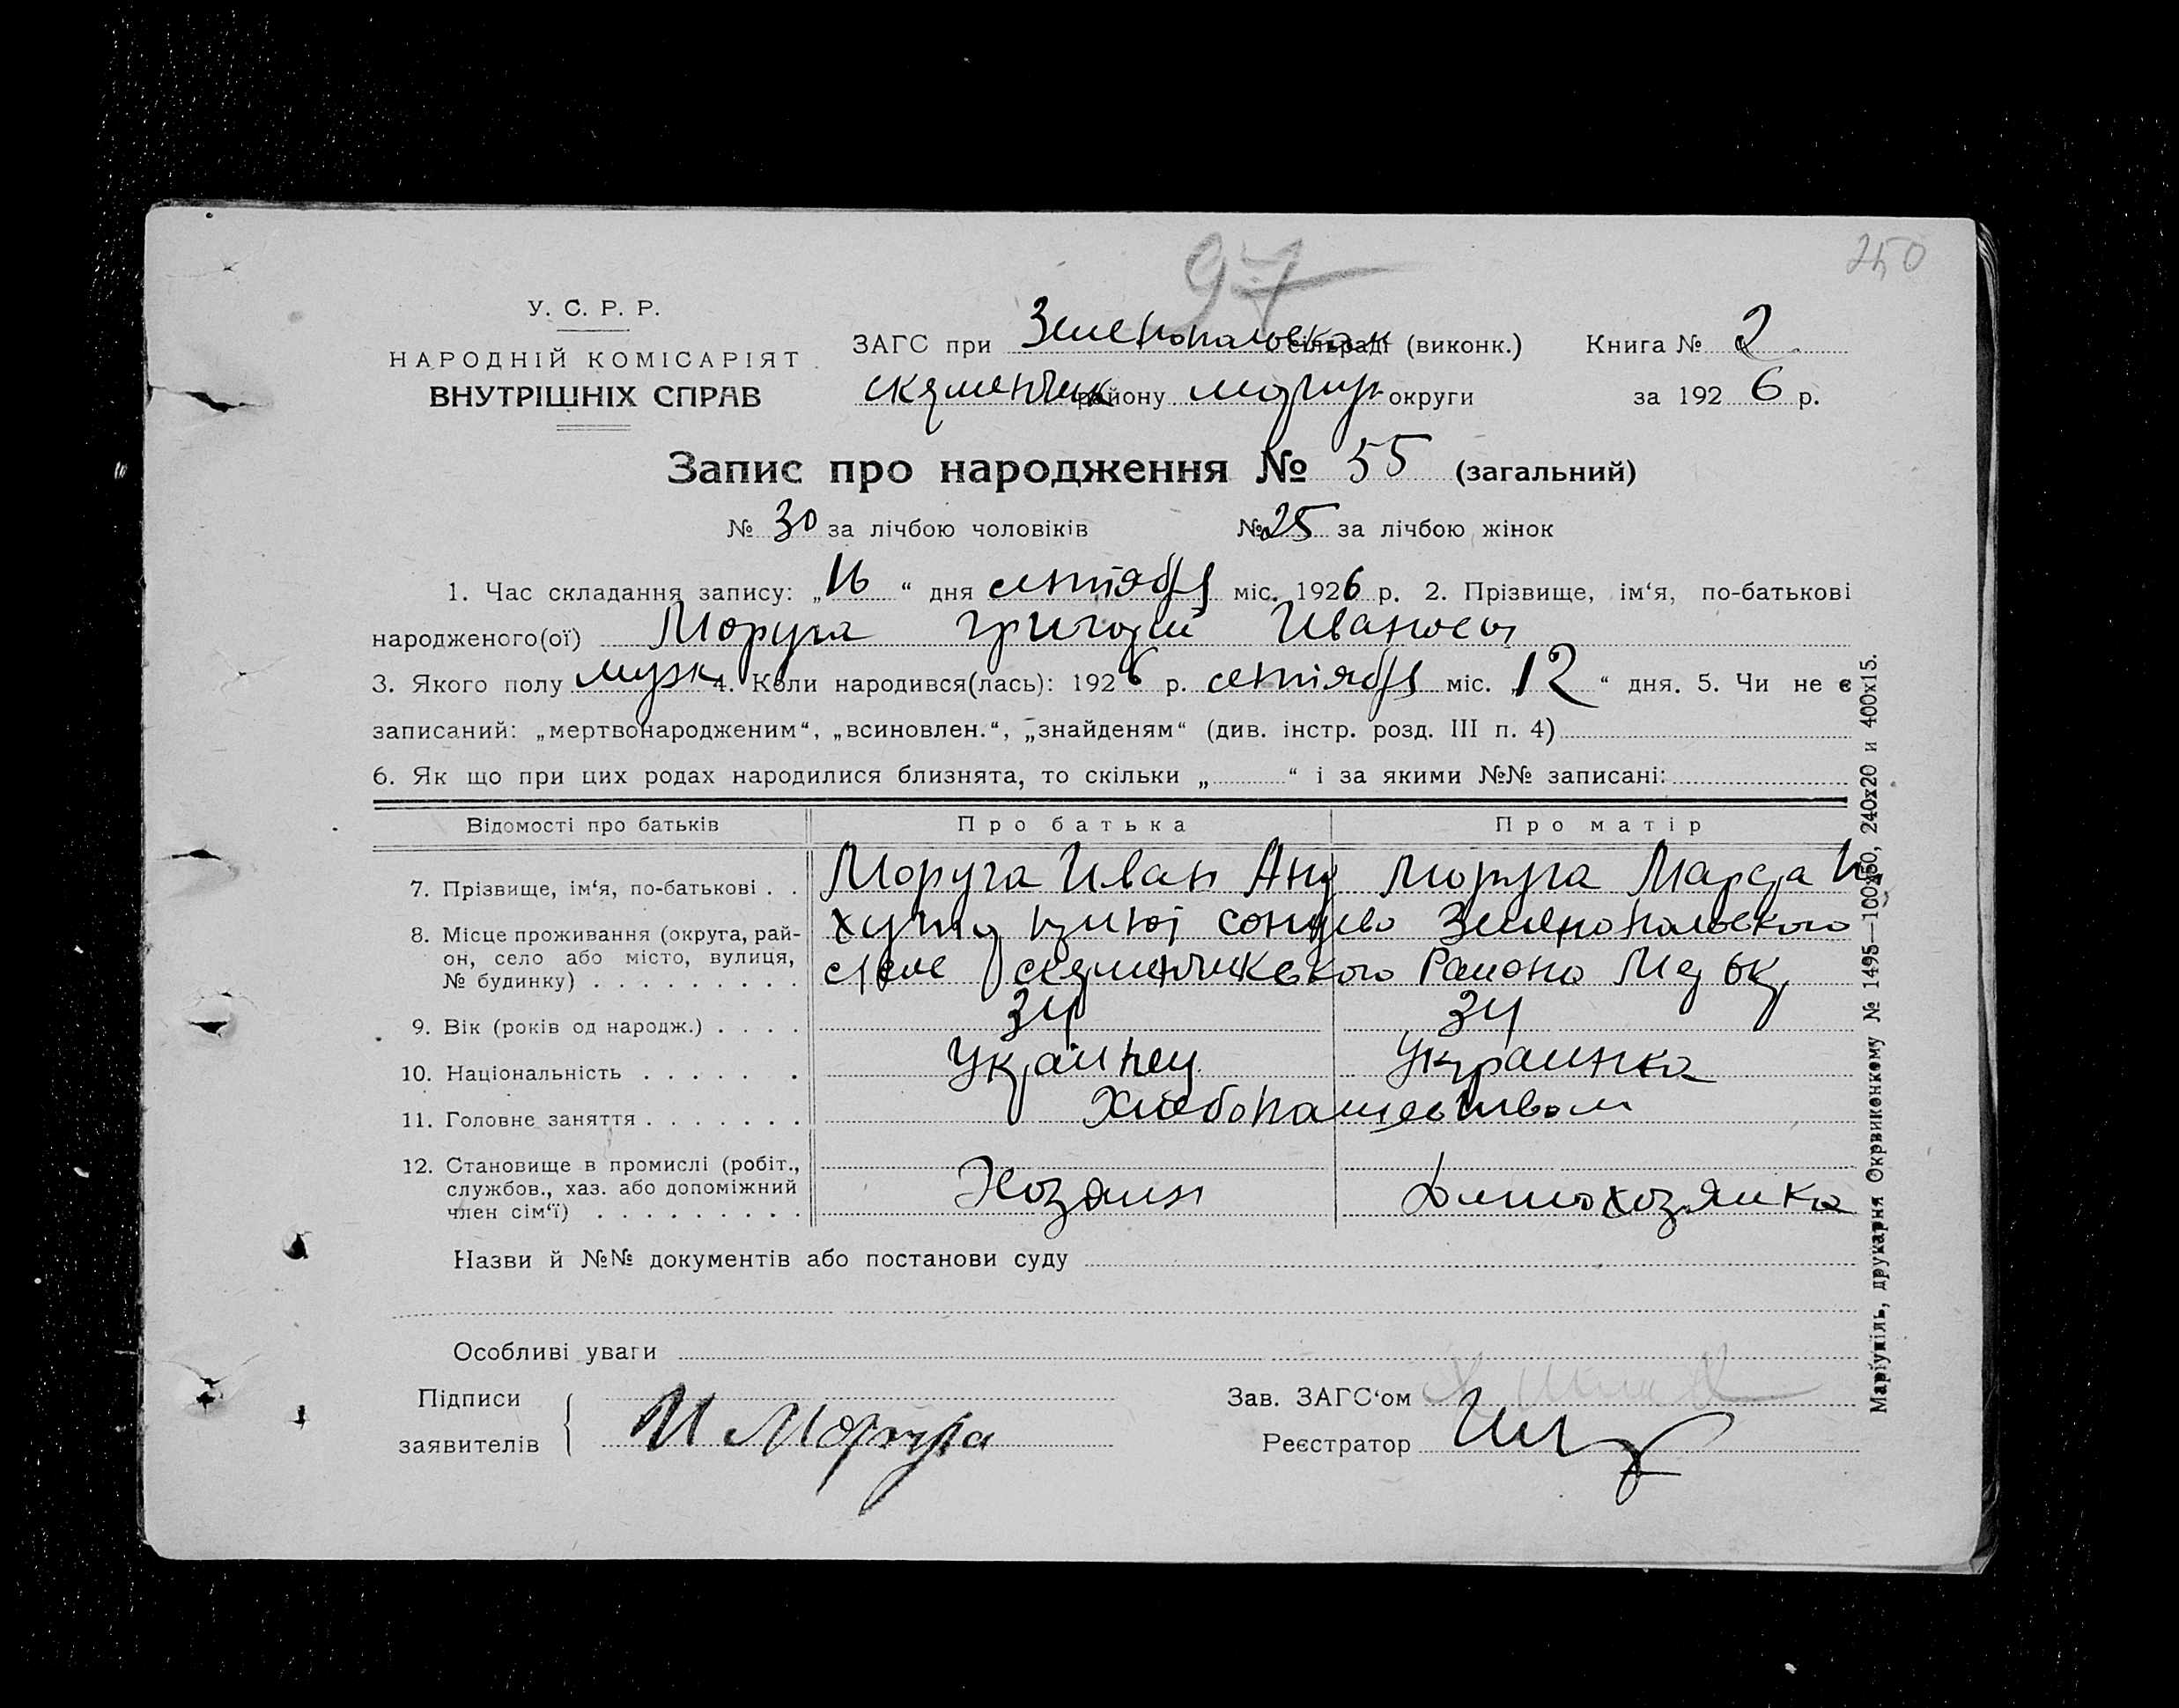 97
250
У. С. Р. Р.
НАРОДНІЙ КОМІСАРІЯТ
ВНУТРІШНІХ СПРАВ
ЗАГС при Зеленопольском сільраді (виконк.) Книга № 2
району округи за 1926 р.
Запис про народження № 55 (загальний)
№ 30 за лічбою чоловіків № 25 за лічбою жінок
1. Час складання запису: „16“ дня сентября міс. 1926 р. 2. Прізвище, ім‘я, по-батькові
народженого(ої) Моруга Григорий Иванович
3. Якого полу муж 4. Коли народився(лась): 1926 р. сентября міс. „12“ дня. 5. Чи не є
записаний: „мертвонародженим“, „всиновлен.“, „знайденям“ (див. інстр. розд. III п. 4)
6. Як що при цих родах народилися близнята, то скільки „ “ і за якими №№ записані:
Відомості про батьків Про батька Про матір
7. Прізвище, ім‘я, по-батькові . . Моруга Иван Анд Моруга И
8. Місце проживання (округа, рай-
он, село або місто, вулиця,
№ будинку) . . . . . . . . . Зеленопольского
Района
9. Вік (років од народж.) . . . . 34 34
10. Національність . . . . . . . Украинец Украинка
11. Головне заняття . . . . . . . Хлебопашеством
12. Становище в промислі (робіт.,
службов., хаз. або допоміжний
член сім‘ї) . . . . . . . . . Хозяин Домохозяйка
Назви й №№ документів або постанови суду
Особливі уваги
Підписи
заявителів И Моруга
Зав. ЗАГС‘ом
Реєстратор
Маріупіль, друкарня Окрвиконкому № 1495—100х50, 240х20 и 400х15.